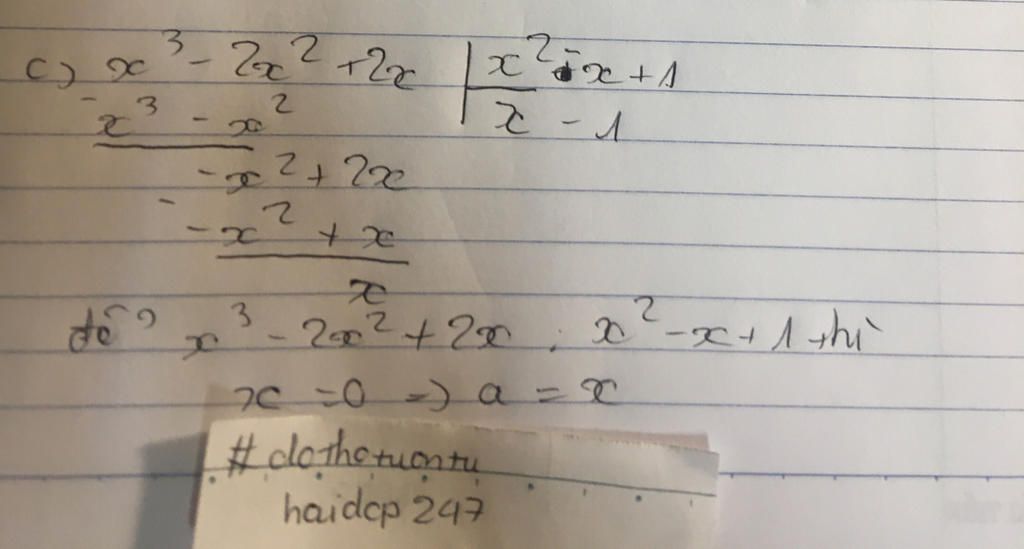 c) x³ - 2x² + 2x | x² - x + 1
- x³ - x² x - 1
- x² + 2x
- - x² + x
x
để x³ - 2x² + 2x : x² - x + 1 thì
x = 0 => a = x
# dothotuontu
haidep 247